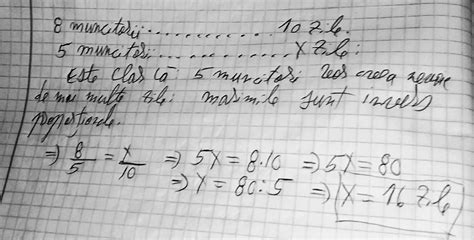 8 muncitorii .............. 10 Zile.
5 muncitori ................ X Zile;
Este clar că 5 muncitori vor avea nevoie
de mai multe zile; mărimile sunt invers
proporționale.
⇒ 8/5 = x/10 ⇒ 5X = 8·10 ⇒ 5X = 80
⇒ X = 80:5 ⇒ X = 16 Zile